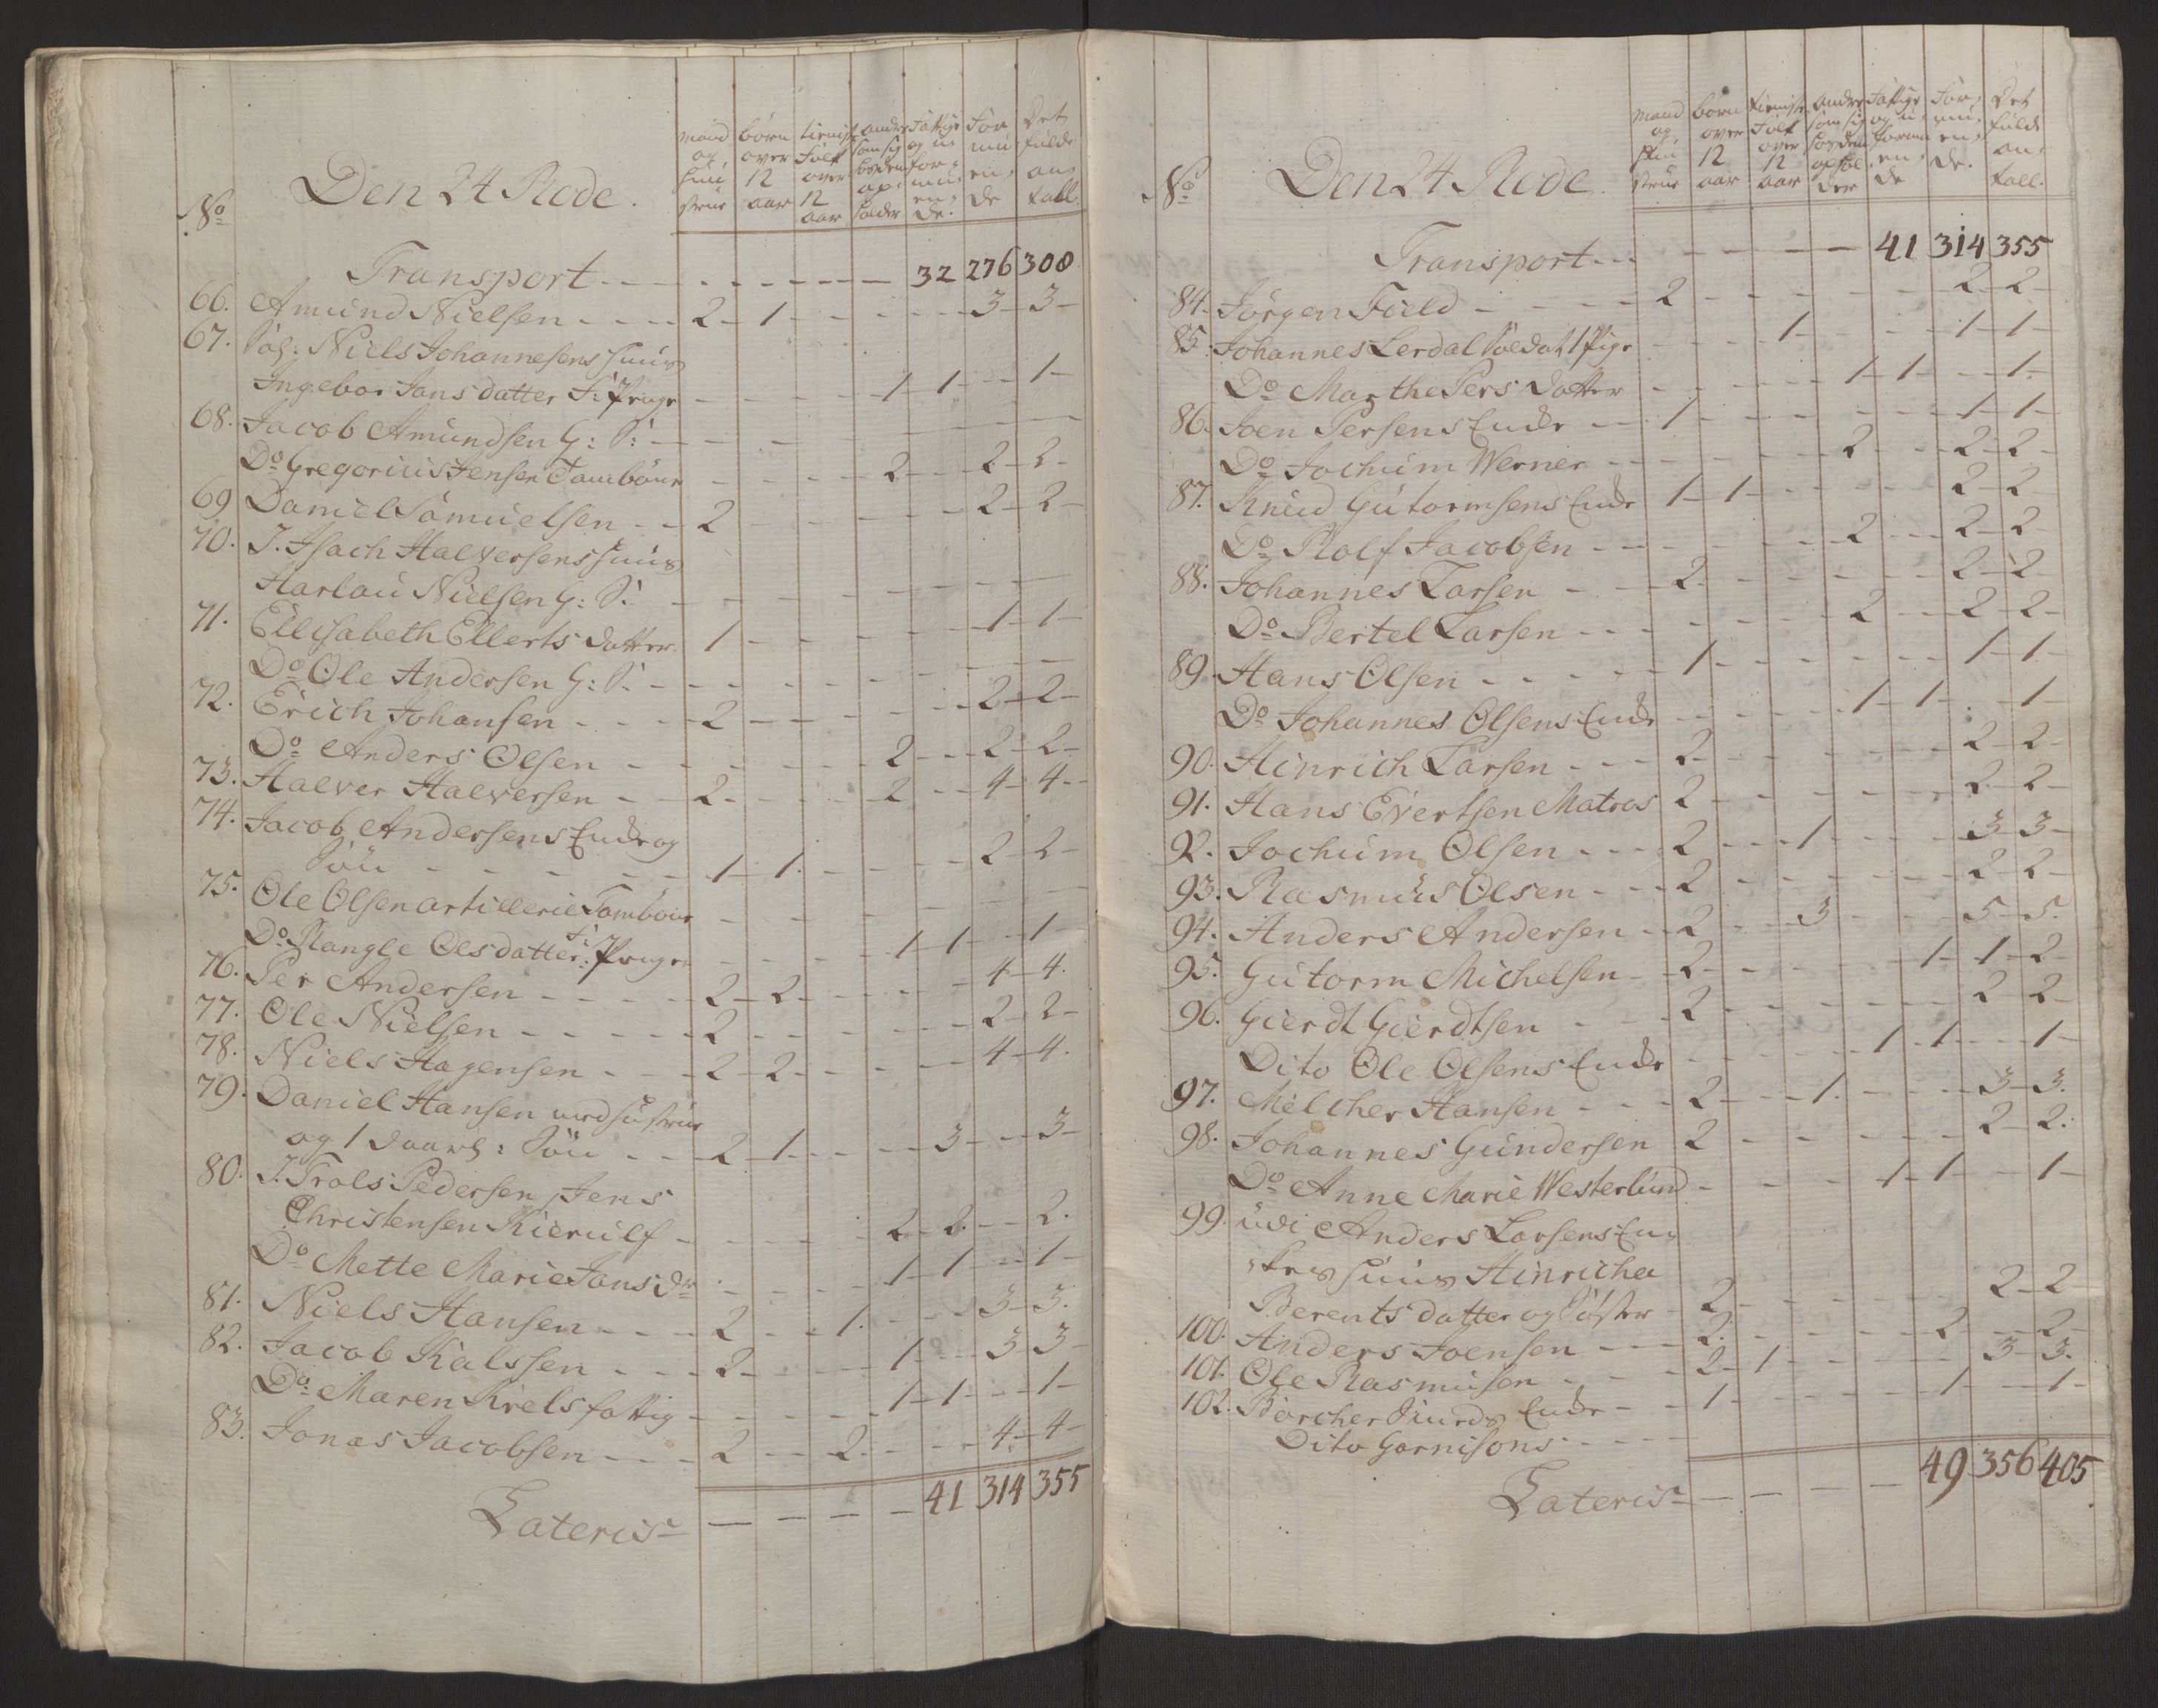 No Den 24 Rode. Mand og Hustrue | børn over 12 aar | tieniste Folk over 12 aar | andre som sig opholder | Fattige og uformuende | Formuende | Det fulde antall.
Transport - - - - - 32 276 308
66. Amund Nielsen - - - - 2 - 1 - - - - 3 - 3 -
67. Sal: Niels Johannesens Huus
Ingebor Jans datter - - - - 1 - 1 - - 1 -
68. Jacob Amundsen G: S: - - - - - - -
Do Gregorius Jensen Tambour - - - - 2 - - 2 - 2 -
69 Daniel Samuelsen - - 2 - - - 2 - 2 -
70. J. Isach Halversens Huus
Harlau Nielsen G: S: - - - - - - -
71. Ellisabeth Ellerts datter 1 - - - - - 1 - 1 -
Do Ole Andersen G: S: - - - - - - -
72. Erich Johansen - - - - 2 - - - - - 2 - 2 -
Do Anders Olsen - - - - - 2 - - 2 - 2 -
73. Halver Halversen - - 2 - - - 2 - - 4 - 4 -
74. Jacob Andersens Encke og
Søn - - - - - 1 - 1 - - - - 2 - 2 -
75. Ole Olsen artillerie Tambour - - - - - - -
Do Rangle Olsdatter - - - - 1 - 1 - - 1 -
76. Per Andersen - - - - - 2 - 2 - - - - 4 - 4.
77. Ole Nielsen - - - - - 2 - - - - - 2 - 2 -
78. Niels Hagensen - - - - 2 - 2 - - - - 4 - 4.
79. Daniel Hansen med Hustrue
og 1 daarl: Søn - - - 2 - 1 - - - 3 - - 3 -
80. J. Trols Pedersen, Jens
Christensen Kierulf - - - - - 2 - 2. - - 2.
Do Mette Marie Jans dr - - - - 1 - 1 - - 1 -
81. Niels Hansen - - - - 2 - - 1. - - - 3 - 3.
82. Jacob Kalssen - - - - 2 - - - 1 - - 3 3 -
Do Maren Krels fattig - - - - - 1 - 1 - - 1 -
83. Jonas Jacobsen - - - - 2 - - 2 - - - 4 - 4 -
Lateris - - - - - 41 314 355
No Den 24 Rode. Mand og Hustrue | børn over 12 aar | tieniste Folk over 12 aar | andre som sig opholder | Fattige og uformuende | Formuende. | Det fulde antall.
Transport - - - - - - 41 314 355
84. Jörgen Field - - - - 2 - - - - - 2 - 2 -
85. Johannes Lerdal Soldat 1 Pige - - 1 - - - 1 - 1 -
Do Marthe Pers datter - - - - 1 - 1 - - 1 -
86. Joen Persens Encke - - 1 - - - - - 1 - 1 -
Do Jochum Werner - - - - - - 2 - - 2 - 2 -
87. Knud Gutormsens Encke 1 - 1 - - - - 2 - 2 -
Do Rolf Jacobsen - - - - - 2 - - 2 - 2
88. Johannes Larsen - - - 2 - - - - - 2 - 2 -
Do Bertel Larsen - - - - - - 2 - - 2 - 2 -
89. Hans Olsen - - - - - 1 - - - - - 1 - 1 -
Do Johannes Olsens Encke - - - - 1 - 1 - - 1 -
90. Hinrich Larsen - - - 2 - - - - - 2 - 2 -
91. Hans Evertsen Matros 2 - - - - - 2 - 2 -
92. Jochum Olsen - - - 2 - - 1 - - - 3 - 3 -
93. Rasmus Olsen - - - 2 - - - - - 2 - 2 -
94. Anders Andersen - - 2 - - 3 - - - 5 - 5.
95. Gutorm Michelsen - - 2 - - - - 1 - 1 - 2 -
96. Gierdt Gierdtsen - - - 2 - - - - - 2 - 2 -
Dito Ole Olsens Encke - - - - 1 - 1 - - 1 -
97. Melcher Hansen - - - 2 - - 1. - - - 3 - 3.
98. Johannes Gundersen 2 - - - - - 2 - 2.
Do Anne Marie Westerlund - - - - 1 - 1 - - 1 -
99. udi Anders Larsens En-
kes Huus Hinricha
Berents datter og Søster - 2 - - - - - 2 - 2
100. Anders Joensen - - - 2. - - - - 2 - - 2 -
101. Ole Rasmusen - - - 2 - 1 - - - - 3 - 3.
102. Borcher Siurds Encke - - 1 - - - - 1 - - 1 -
Dito Garnisons - - - -
Lateris - - - - - 49 356 405